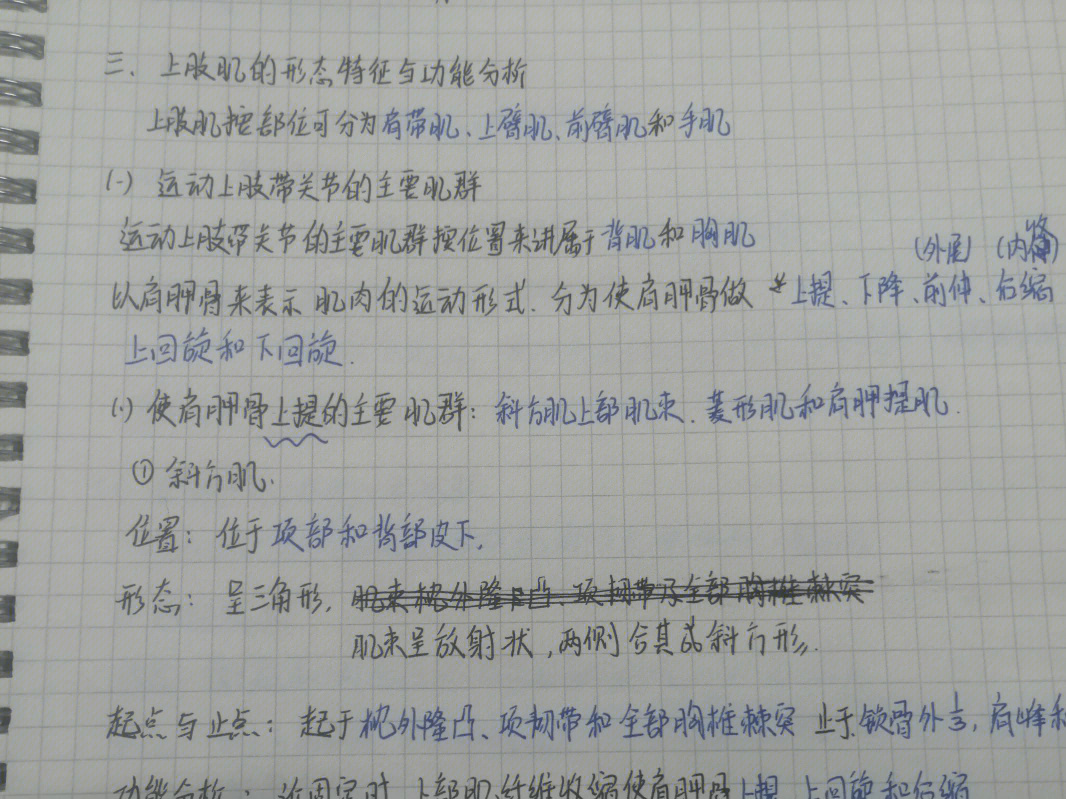 三、上肢肌的形态特征与功能分析
上肢肌按部位可分为肩带肌、上臂肌、前臂肌和手肌
(一) 运动上肢带关节的主要肌群
运动上肢带关节的主要肌群按位置来讲属于背肌和胸肌
(外展) (内收)
以肩胛骨来表示肌肉的运动形式.分为使肩胛骨做上提、下降、前伸、后缩
上回旋和下回旋.
(1) 使肩胛骨上提的主要肌群：斜方肌上部肌束、菱形肌和肩胛提肌.
① 斜方肌.
位置：位于项部和背部皮下.
形态：呈三角形, 肌束枕外隆凸、项韧带及全部胸椎棘突
肌束呈放射状,两侧合其成斜方形.
起点与止点：起于枕外隆凸、项韧带和全部胸椎棘突 止于锁骨外,肩峰和
功能分析：近固定时,上部肌纤维收缩使肩胛骨上提、上回旋和后缩